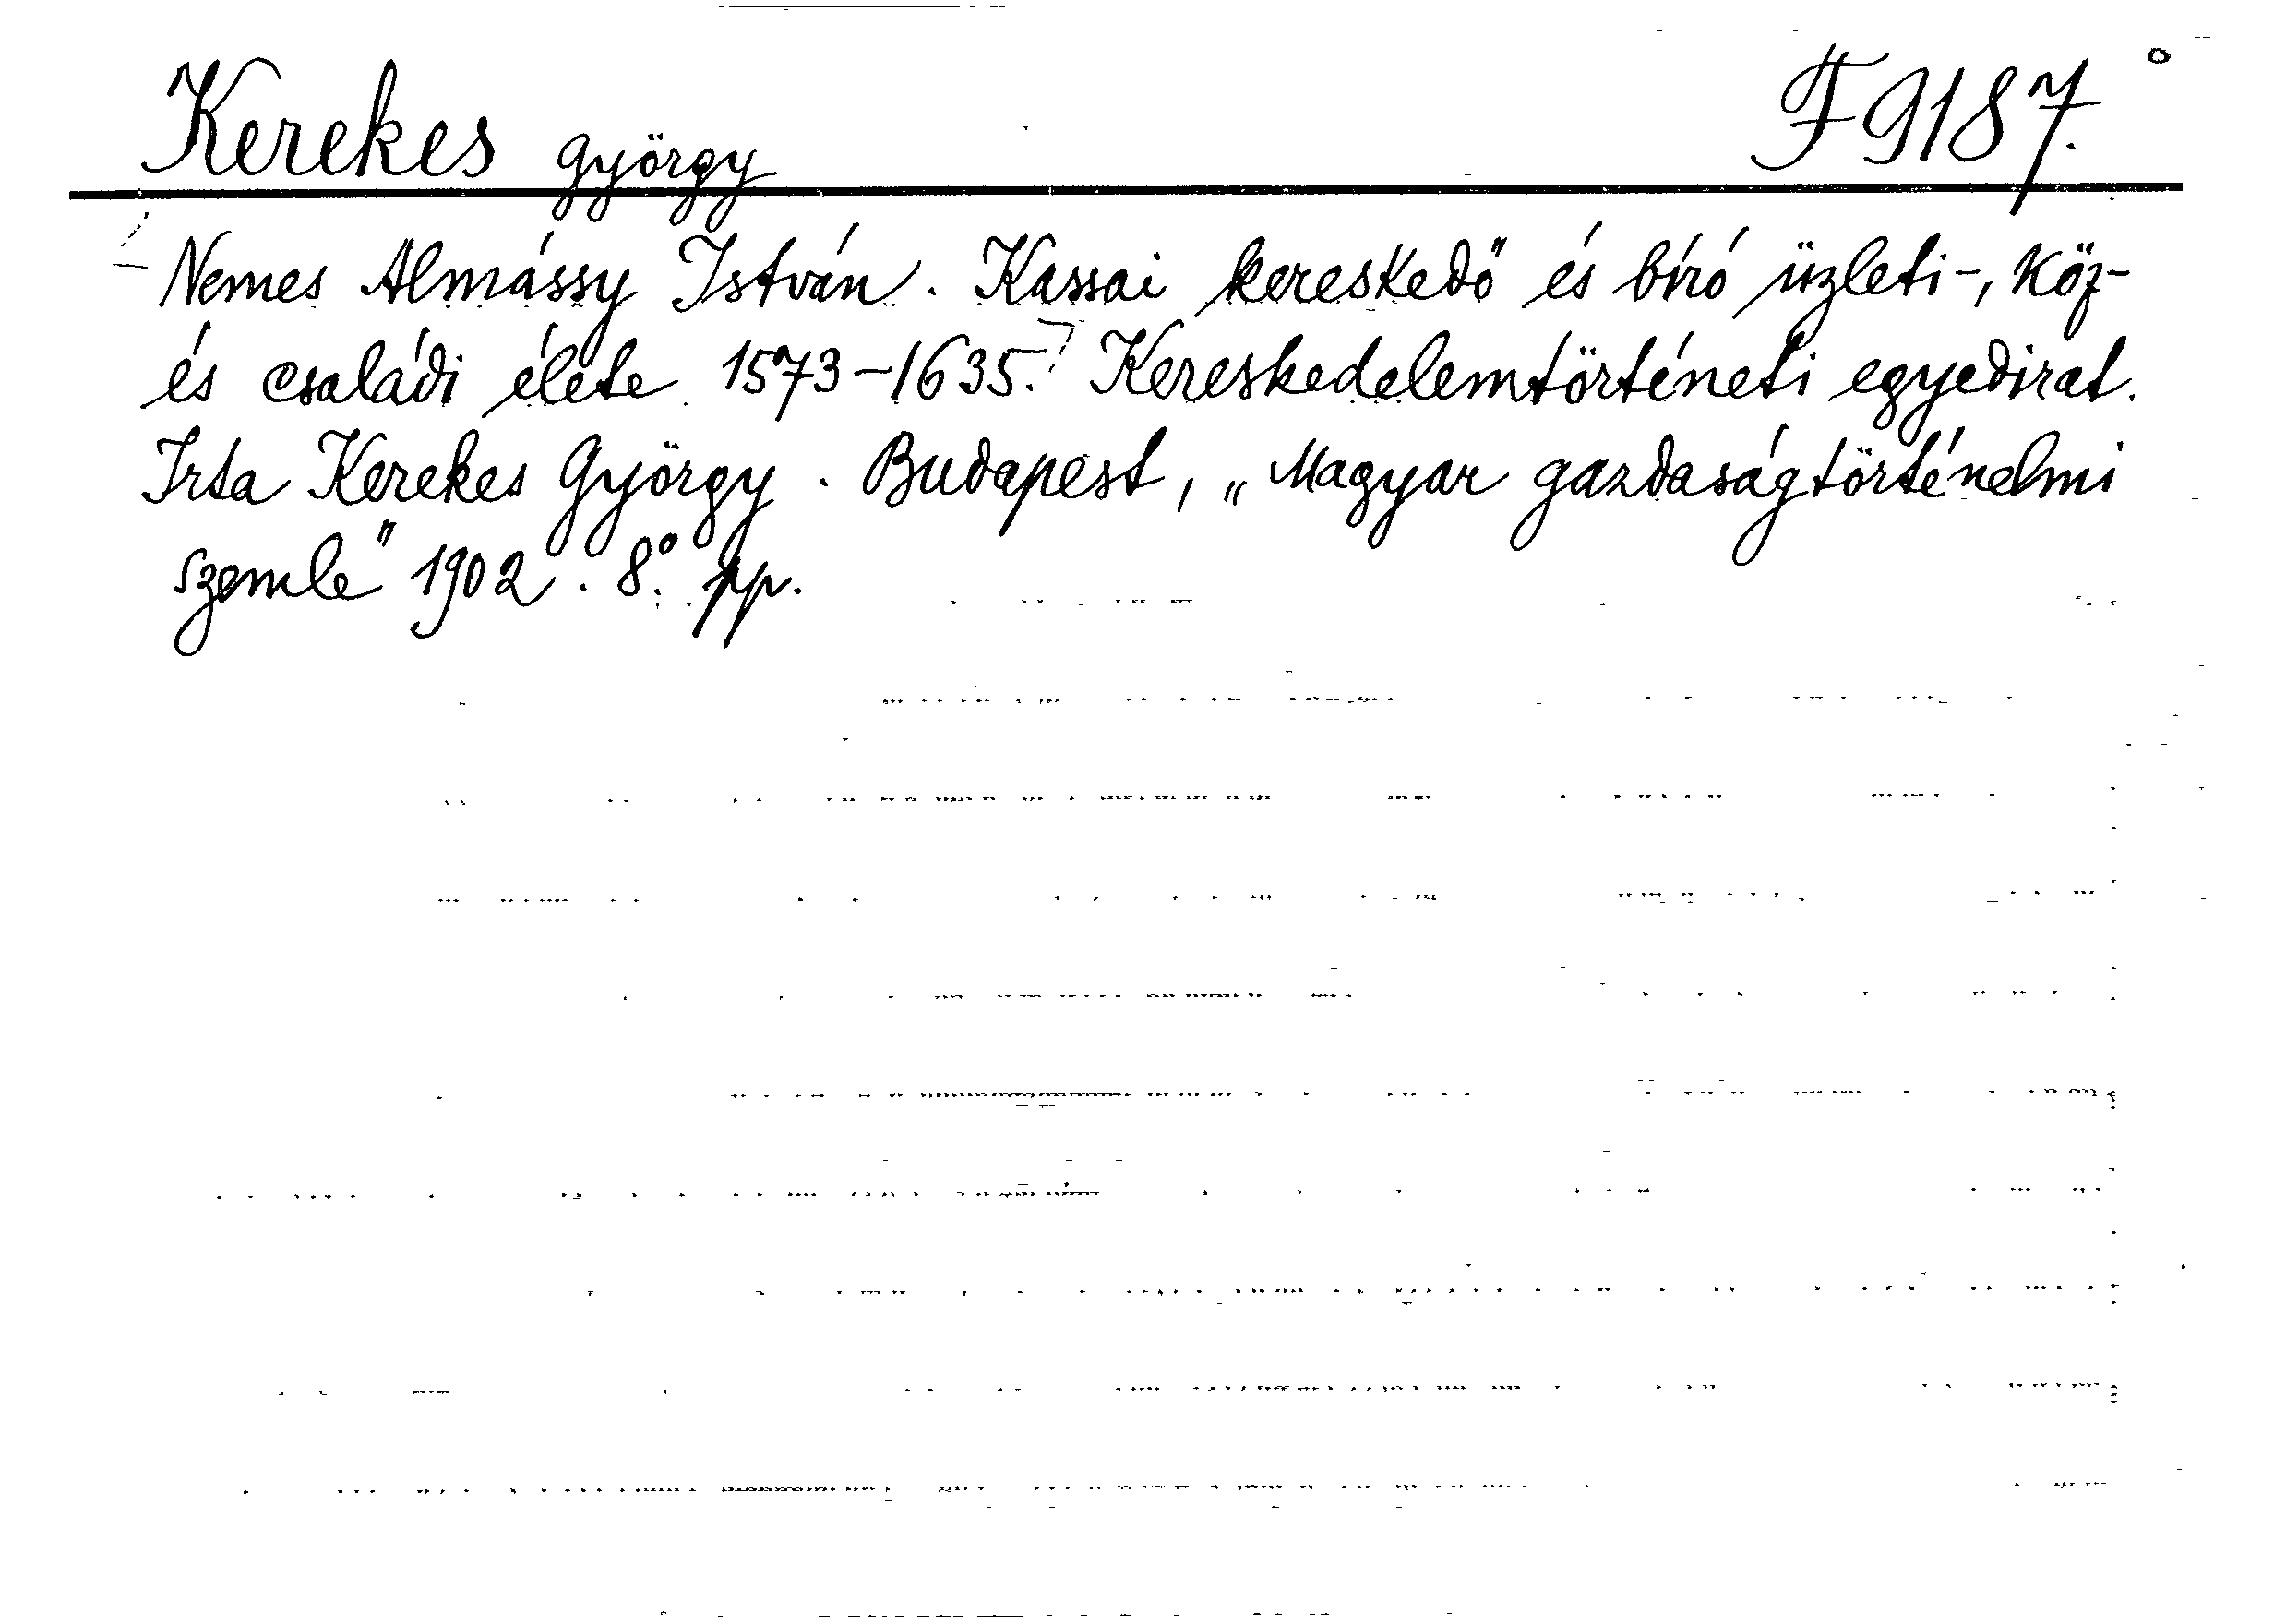 Kerekes György F 9187.
Nemes Almássy István. Kassai kereskedő és bíró üzleti-, köz-
és családi élete 1573-1635. Kereskedelemtörténeti egyedirat.
Irta Kerekes György. Budapest, „Magyar gazdaságtörténelmi
szemle" 1902. 8° pp.